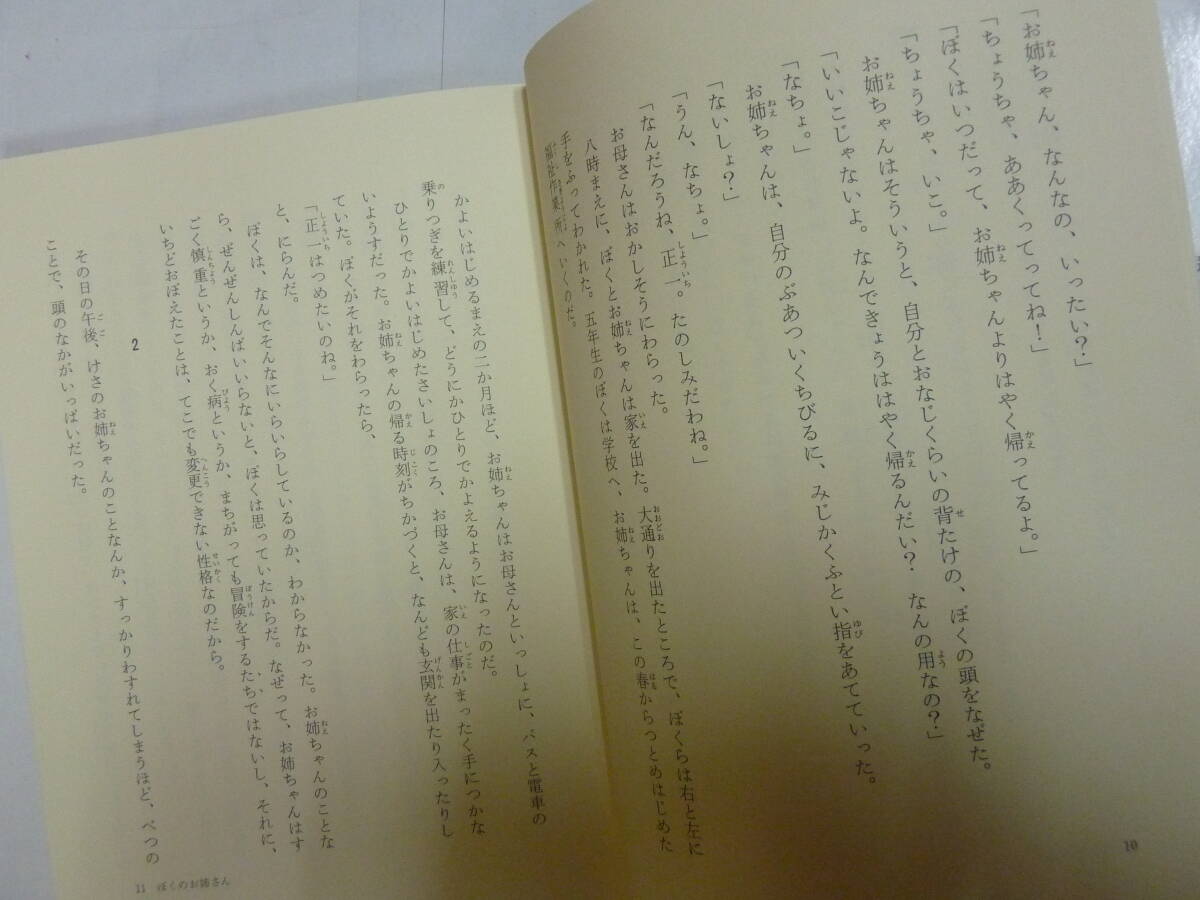 「お姉ちゃん、なんなの、いったい?」
「ちょうちゃ、ああくってってね!」
「ぼくはいつだって、お姉ちゃんよりはやく帰ってるよ。」
「ちょうちゃ、いこ。」
お姉ちゃんはそういうと、自分とおなじくらいの背たけの、ぼくの頭をなぜた。
「いいこじゃないよ。なんできょうははやく帰るんだい? なんの用なの?」
「なちょ。」
お姉ちゃんは、自分のぶあついくちびるに、みじかくふとい指をあてていった。
「ないしょ?」
「うん、なちょ。」
「なんだろうね、正一。たのしみだわね。」
お母さんはおかしそうにわらった。
八時まえに、ぼくとお姉ちゃんは家を出た。大通りを出たところで、ぼくらは右と左に
手をふってわかれた。五年生のぼくは学校へ、お姉ちゃんは、この春からつとめはじめた
福祉作業所へいくのだ。
10
かよいはじめるまえの二か月ほど、お姉ちゃんはお母さんといっしょに、バスと電車の
乗りつぎを練習して、どうにかひとりでかよえるようになったのだ。
ひとりでかよいはじめたさいしょのころ、お母さんは、家の仕事がまったく手につかな
いようすだった。お姉ちゃんの帰る時刻がちかづくと、なんども玄関を出たり入ったりし
ていた。ぼくがそれをわらったら、
「正一はつめたいのね。」
と、にらんだ。
ぼくは、なんでそんなにいらいらしているのか、わからなかった。お姉ちゃんのことな
ら、ぜんぜんしんぱいいらないと、ぼくは思っていたからだ。なぜって、お姉ちゃんはす
ごく慎重というか、おく病というか、まちがっても冒険をするたちではないし、それに、
いちどおぼえたことは、てこでも変更できない性格なのだから。
2
その日の午後、けさのお姉ちゃんのことなんか、すっかりわすれてしまうほど、べつの
ことで、頭のなかがいっぱいだった。
11 ぼくのお姉さん